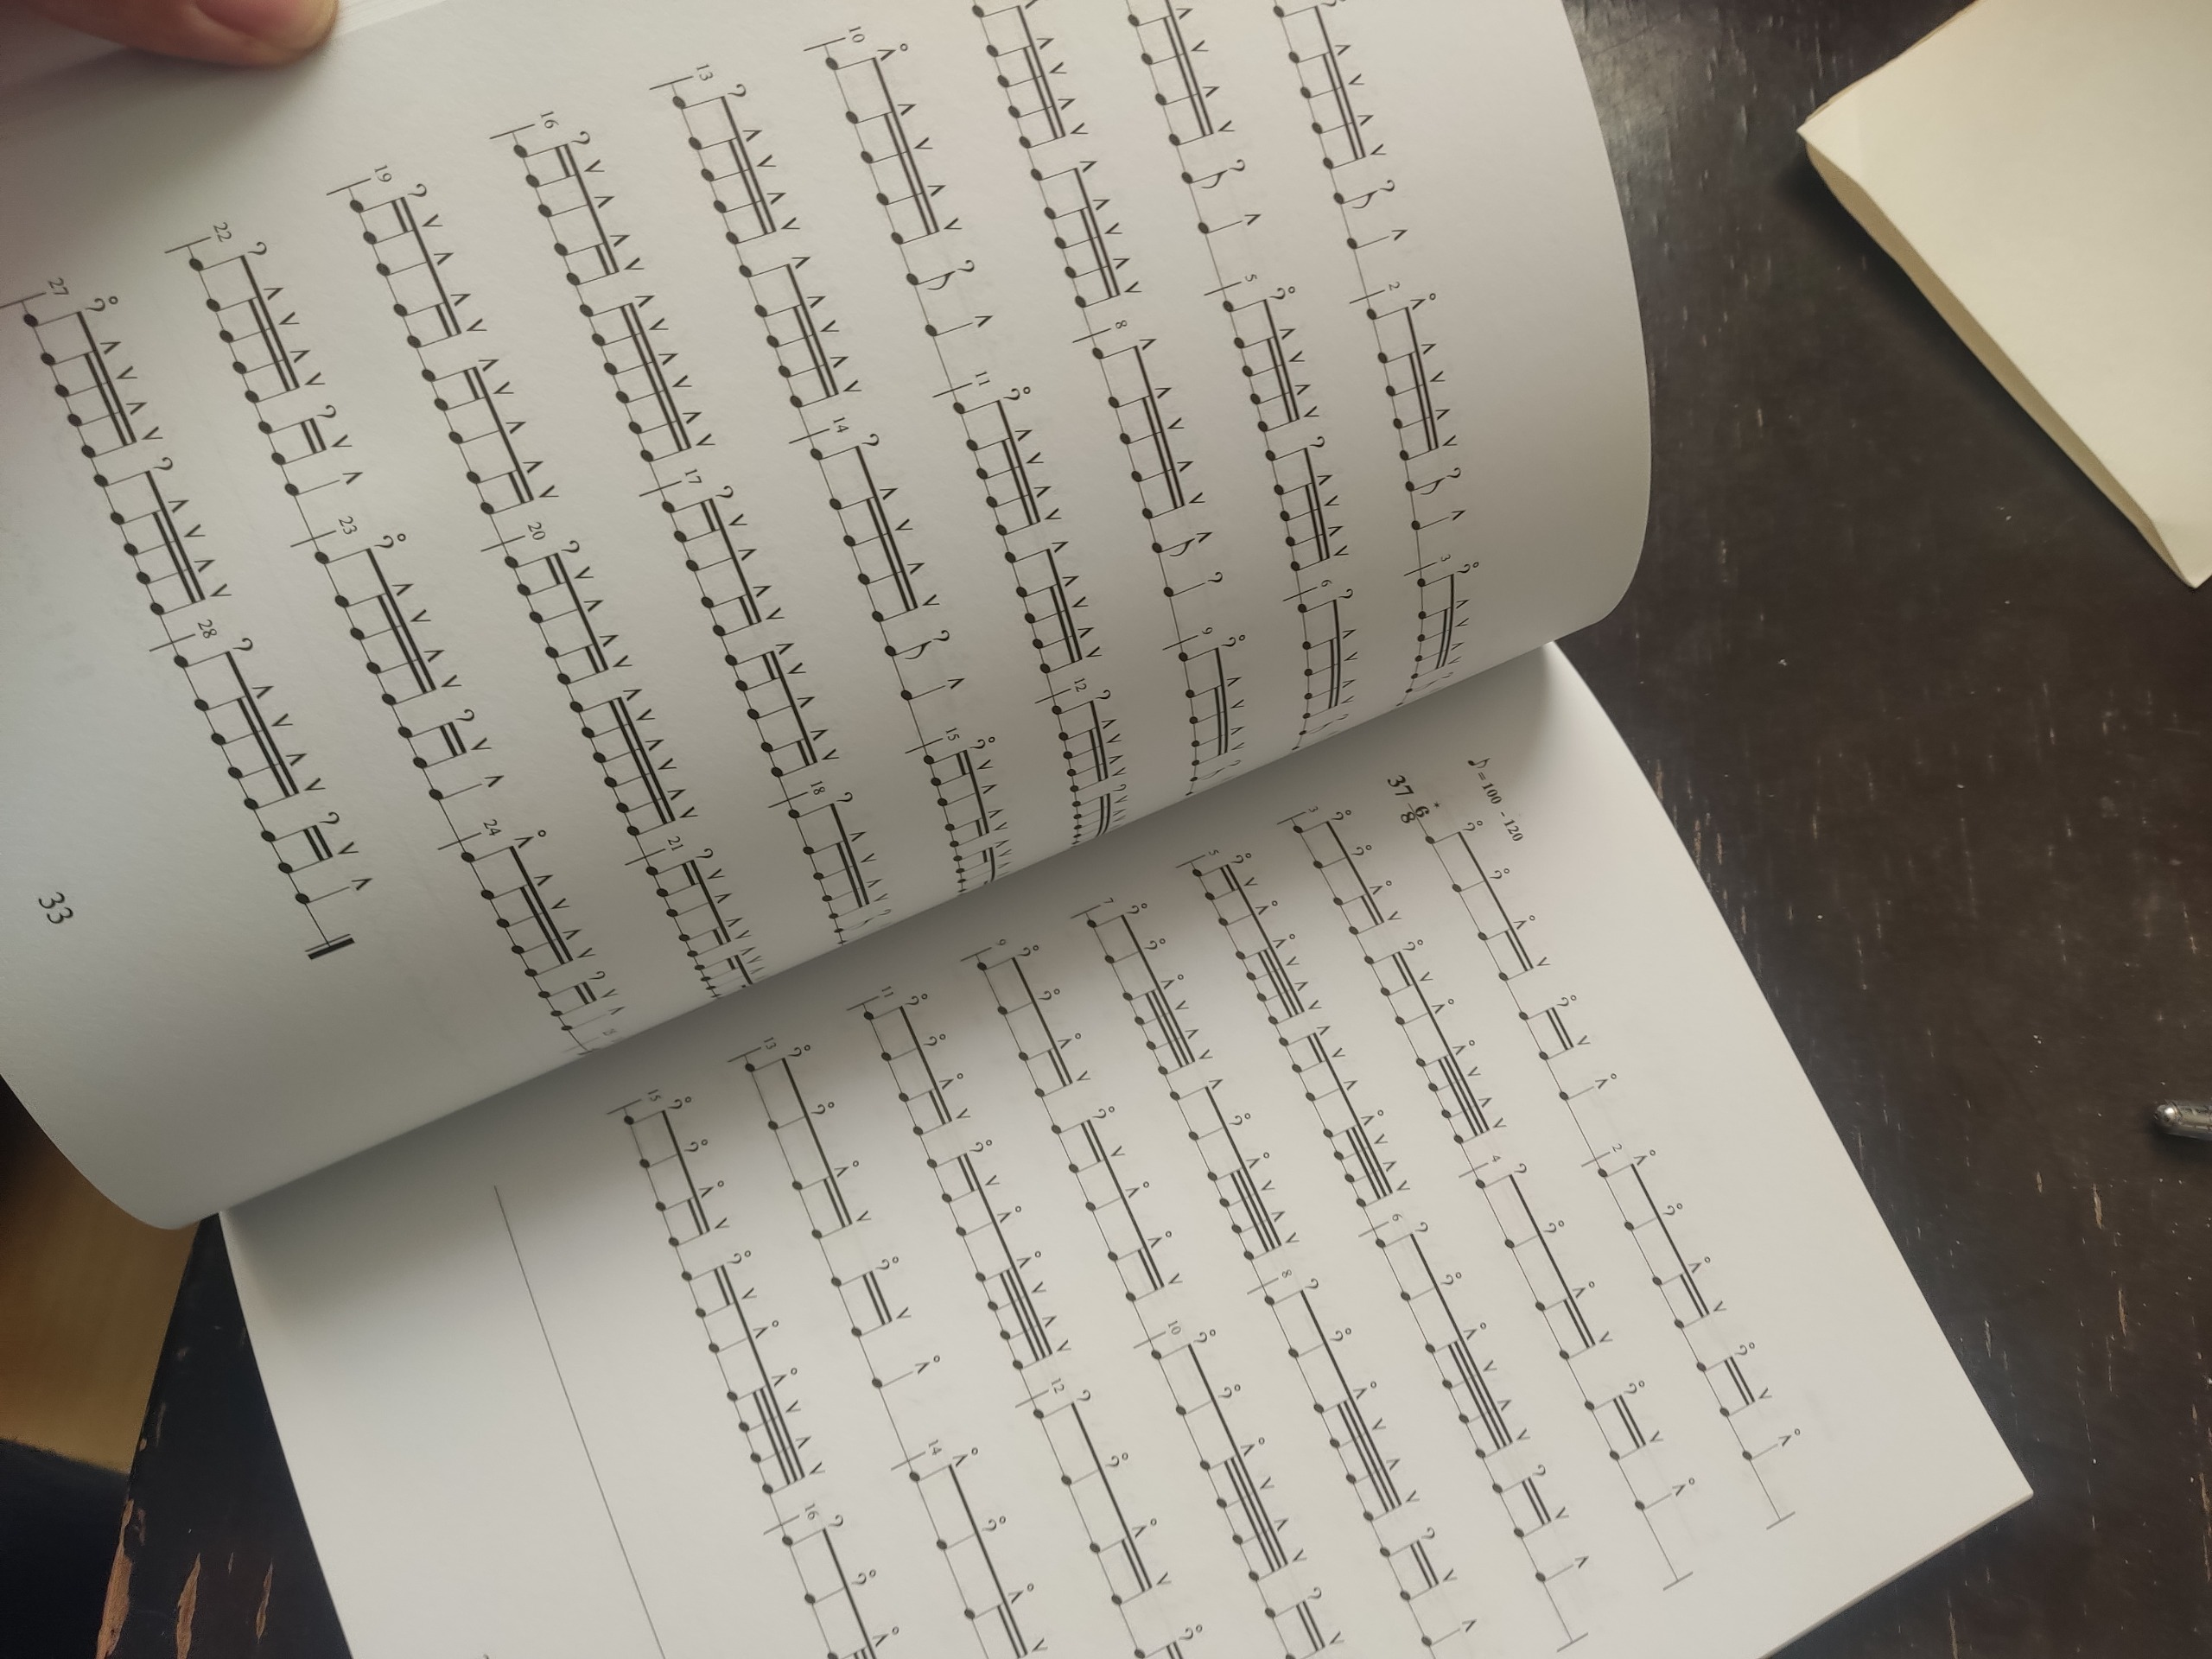 2 3
5 6
8 9
10 11 12
13 14 15
16 17 18
19 20 21
22 23 24
27 28
33
♪ = 100 - 120
37 6/8 2
3 4
5 6
7 8
9 10
11 12
13 14
15 16